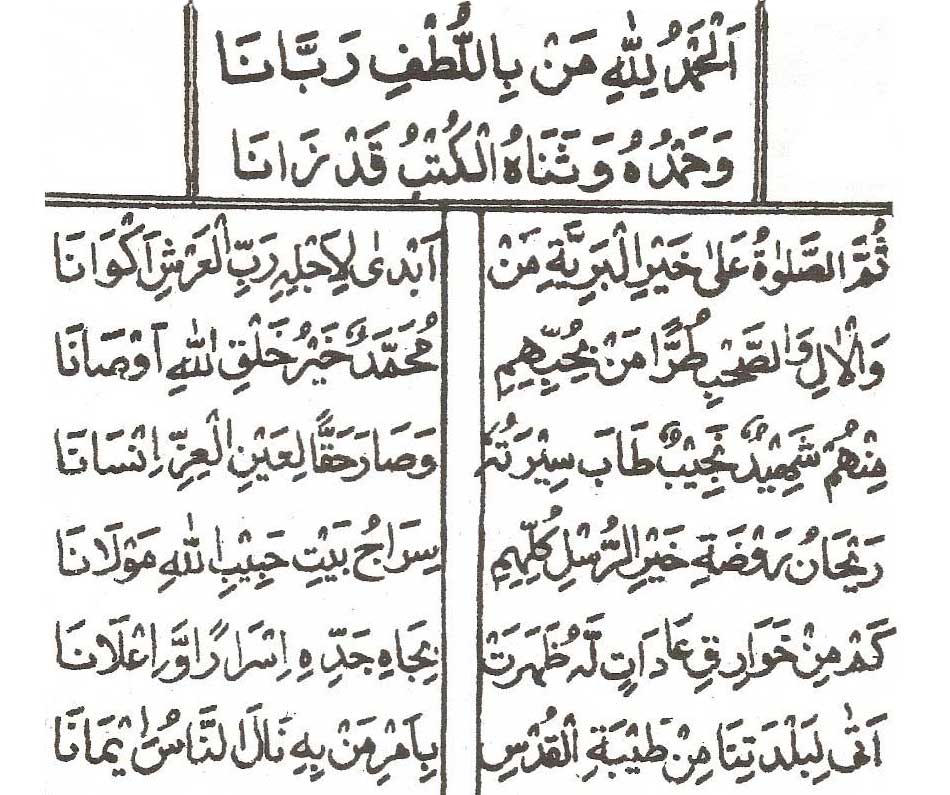 اَلْحَمْدُ لِلّٰهِ مَنْ بِاللُّطْفِ رَبَّانَا
وَحَمْدُهُ وَثَنَاهُ الْكُتْبُ قَدْ زَانَا
ثُمَّ الصَّلٰوةُ عَلٰى خَيْرِ الْبَرِيَّةِ مَنْ اَبْدٰى لِاَجْلِهِ رَبُّ الْعَرْشِ اَكْوَانَا
وَالْاٰلِ وَالصَّحْبِ طُرًّا مَنْ بِحُبِّهِمِ مُحَمَّدٌ خَيْرُ خَلْقِ اللّٰهِ اَوْصَانَا
مِنْهُمْ شَهِيْدٌ نَجِيْبٌ طَابَ سِيْرَتُهُ وَصَارَ حَقًّا لِعَيْنِ الْعِزِّ اِنْسَانَا
رَيْحَانُ رَوْضَةِ خَيْرِ الرُّسْلِ كُلِّهِمِ سِرَاجُ بَيْتِ حَبِيْبِ اللّٰهِ مَوْلَانَا
كَمْ مِنْ خَوَارِقِ عَادَاتٍ لَّهُ ظَهَرَتْ بِجَاهِ جَدِّهِ اِسْرَارًا وَّاِعْلَانَا
اَتٰى لِبَلْدَتِنَا مِنْ طَيْبَةِ الْقُدْسِ بِاَمْرِ مَنْ بِهِ نَالَ النَّاسُ اِيْمَانَا